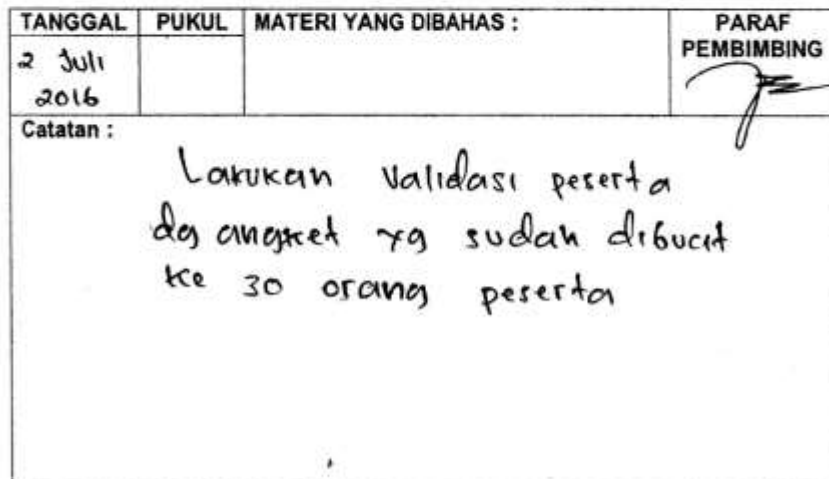 TANGGAL PUKUL MATERI YANG DIBAHAS : PARAF
PEMBIMBING
2 Juli
2016
Catatan :
Lakukan validasi peserta
dg angket yg sudah dibuat
ke 30 orang peserta